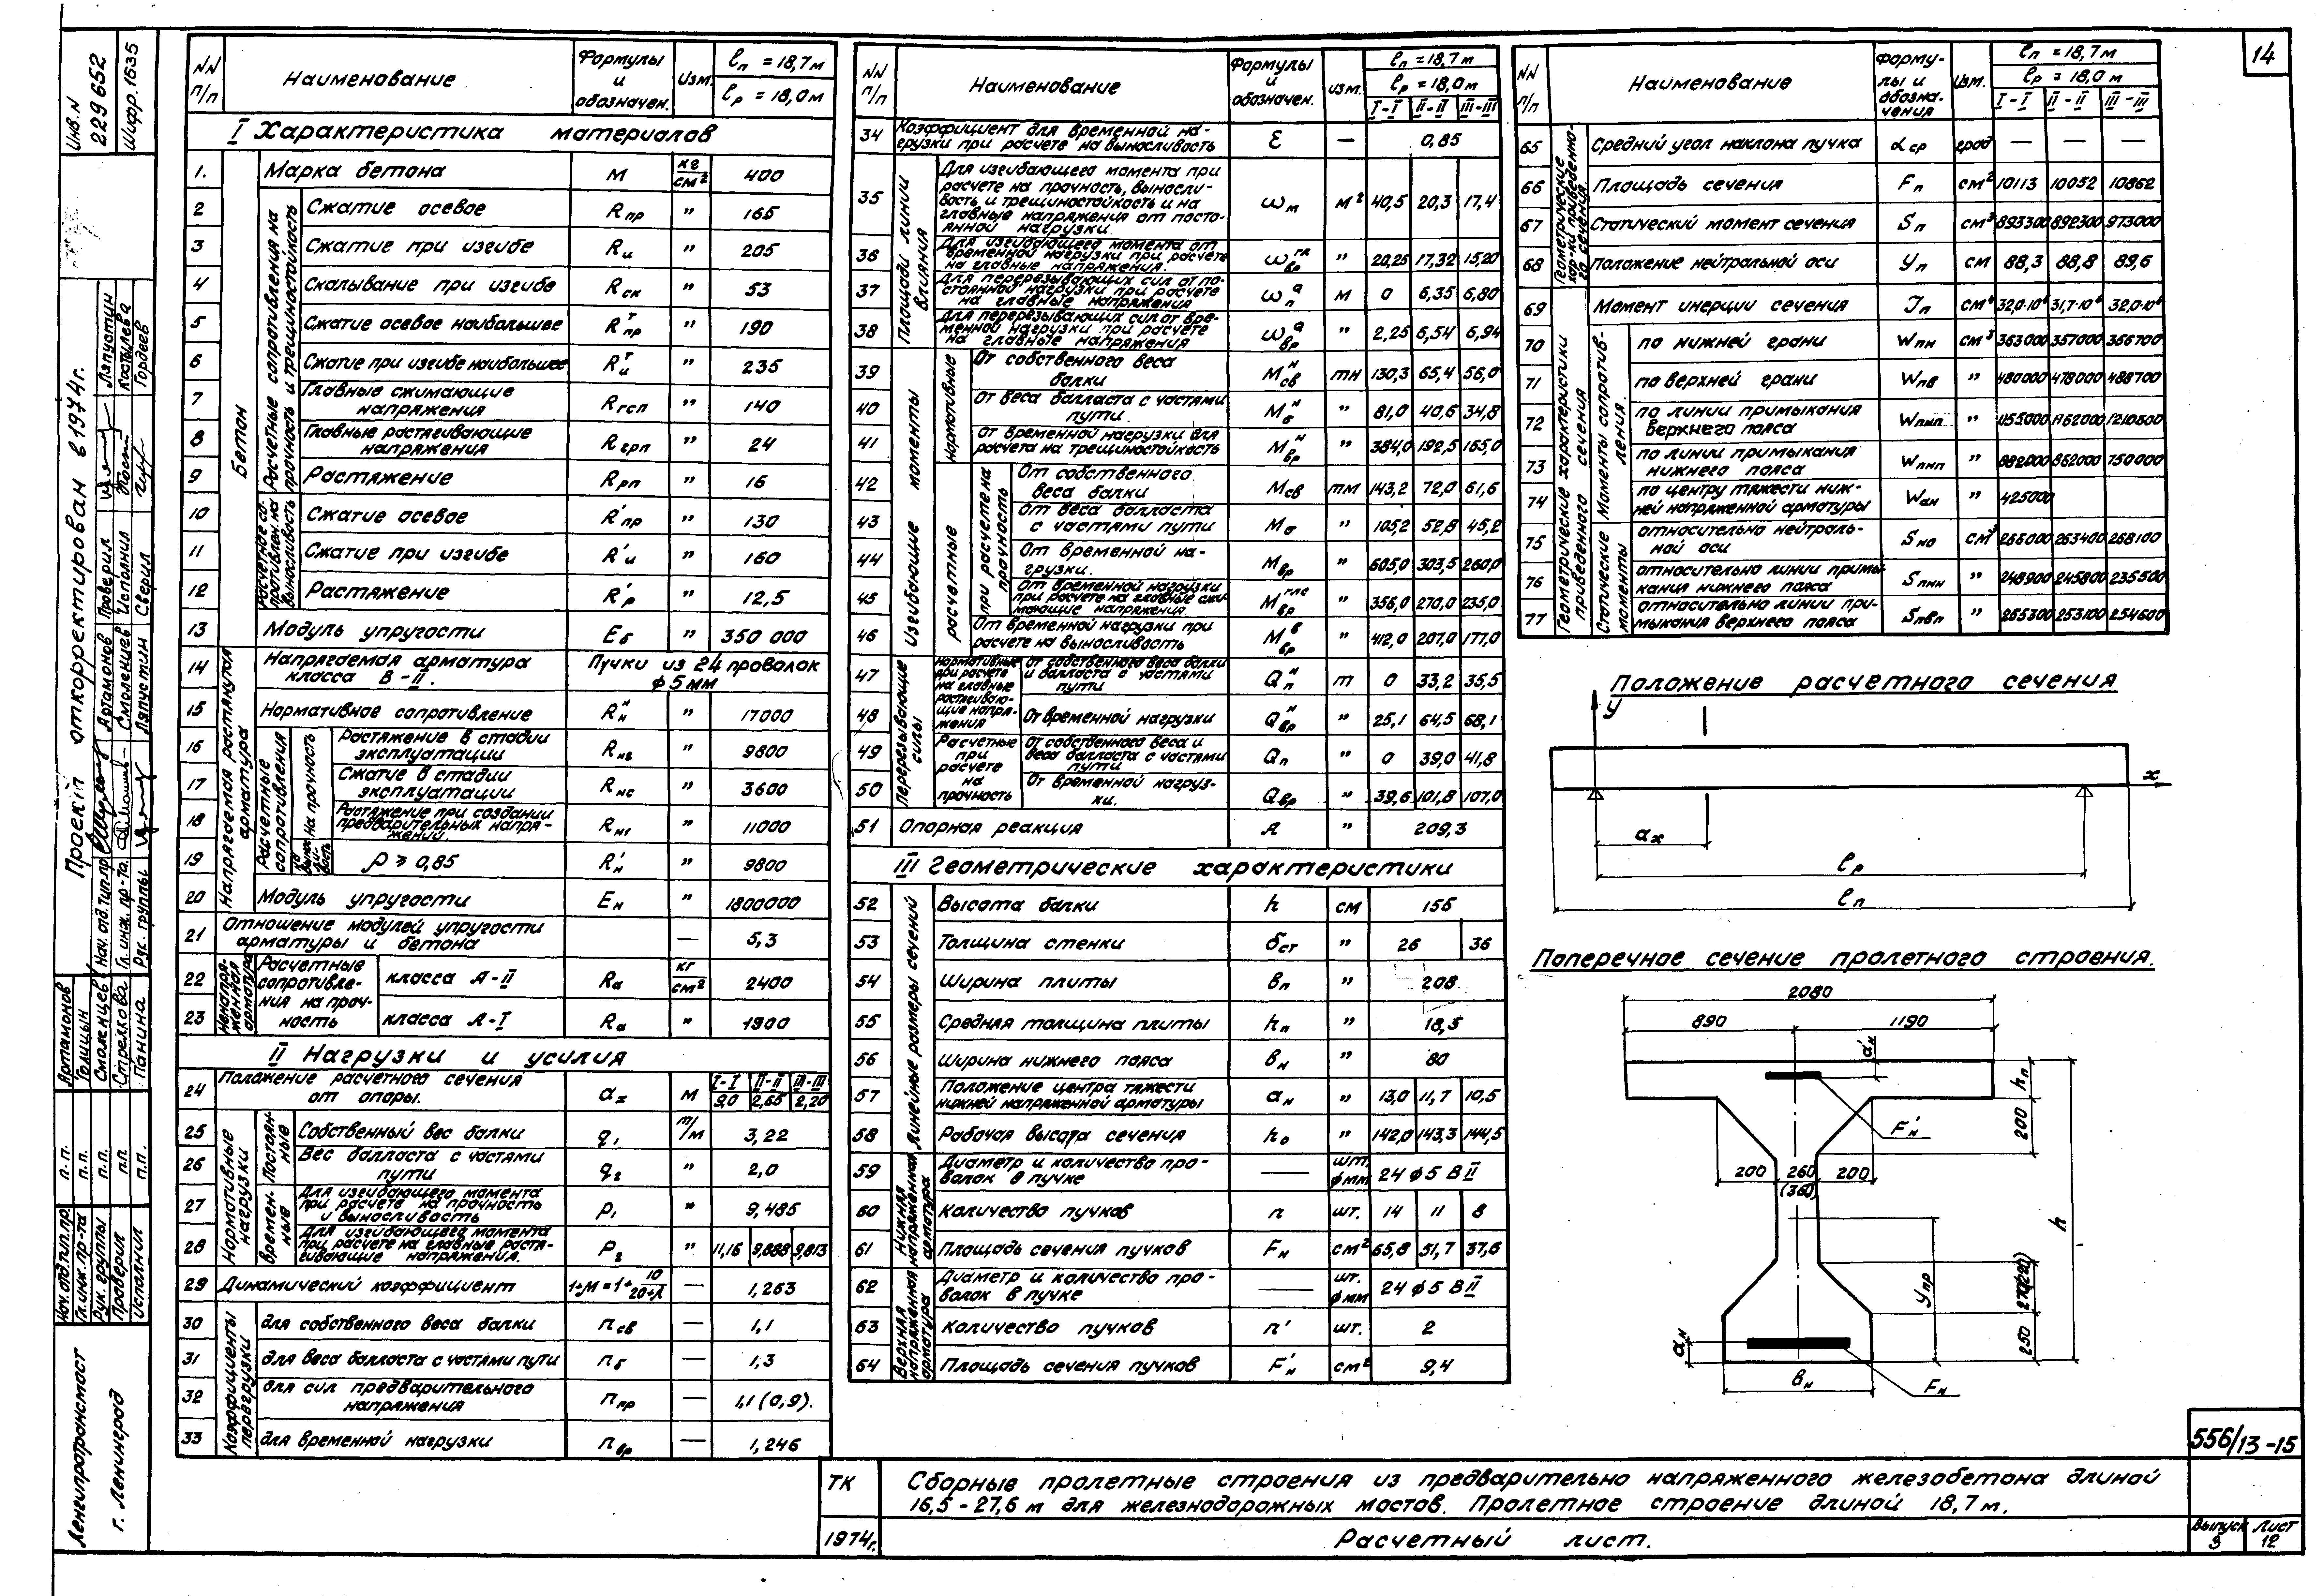 14
Инв. N 229652
Шифр. 1635
Проект откорректирован в 1974г.
Нач. отд. тип. пр. Артамонов Проверил Ляпустин
Гл. инж. пр-та. Смоленцев Исполнил Костылева
Рук. группы Ляпустин Сверил Гордеев
Нач. отд. тип. пр. п.п. Артамонов
Гл. инж. пр-та п.п. Голицын
Рук. группы п.п. Смоленцев
Проверил п.п. Стрелкова
Исполнил п.п. Панина
Ленгипротрансмост
г. Ленинград
NN п/п Наименование Формулы и обозначен. Изм. ℓп = 18,7м
ℓр = 18,0м
I Характеристика материалов
Бетон
Расчетные сопротивления на прочность и трещиностойкость
1. Марка бетона М кг/см² 400
2 Сжатие осевое Rпр " 165
3 Сжатие при изгибе Rи " 205
4 Скалывание при изгибе Rск " 53
5 Сжатие осевое наибольшее Rᵀпр " 190
6 Сжатие при изгибе наибольшее Rᵀи " 235
7 Главные сжимающие напряжения Rгсп " 140
8 Главные растягивающие напряжения Rгрп " 24
9 Растяжение Rрп " 16
Расчетные сопротивлен. на выносливость
10 Сжатие осевое R'пр " 130
11 Сжатие при изгибе R'и " 160
12 Растяжение R'р " 12,5
13 Модуль упругости Еб " 350 000
Напрягаемая растянутая арматура
14 Напрягаемая арматура класса В-II. Пучки из 24 проволок ф 5 мм
15 Нормативное сопротивление Rᴴн " 17000
Расчетные сопротивления
На прочность
16 Растяжение в стадии эксплуатации Rн2 " 9800
17 Сжатие в стадии эксплуатации Rнс " 3600
18 Растяжение при создании предварительных напряжений. Rн1 " 11000
19 ρ ≥ 0,85 R'н " 9800
20 Модуль упругости Ен " 1800000
21 Отношение модулей упругости арматуры и бетона — 5,3
Ненапряженная арматура
Расчетные сопротивления на прочность
22 класса А-II Rа кг/см² 2400
23 класса А-I Rа " 1900
II Нагрузки и усилия
24 Положение расчетного сечения от опоры. aх м I-I 9,0 II-II 2,65 III-III 2,20
Нормативные нагрузки
Постоянные
25 Собственный вес балки q₁ т/м 3,22
26 Вес балласта с частями пути q₂ " 2,0
Временные
27 Для изгибающего момента при расчете на прочность и выносливость р₁ " 9,485
28 Для изгибающего момента при расчете на главные растягивающие напряжения. Р₂ " 11,16 9,888 9,813
29 Динамический коэффициент 1+М=1+10/20+λ — 1,263
Коэффициенты перегрузки
30 для собственного веса балки nсв — 1,1
31 для веса балласта с частями пути nб — 1,3
32 для сил предварительного напряжения nпр — 1,1 (0,9).
33 для временной нагрузки nвр — 1,246
NN п/п Наименование Формулы и обозначен. изм. ℓп = 18,7м
ℓр = 18,0м
I-I II-II III-III
34 Коэффициент для временной нагрузки при расчете на выносливость ε — 0,85
Площади линии влияния
35 Для изгибающего момента при расчете на прочность, выносливость и трещиностойкость и на главные напряжения от постоянной нагрузки. ωм м² 40,5 20,3 17,4
36 Для изгибающего момента от временной нагрузки при расчете на главные напряжения. ωᴦᴫвр " 20,25 17,32 15,20
37 Для перерезывающих сил от постоянной нагрузки при расчете на главные напряжения ωᵃп м 0 6,35 6,80
38 Для перерезывающих сил от временной нагрузки при расчете на главные напряжения ωᵃвр " 2,25 6,54 6,94
Изгибающие моменты
нормативные
39 От собственного веса балки Мᴴсв тм 130,3 65,4 56,0
40 От веса балласта с частями пути. Мᴴб " 81,0 40,6 34,8
41 От временной нагрузки для расчета на трещиностойкость Мᴴвр " 384,0 192,5 165,0
расчетные
при расчете на прочность
42 От собственного веса балки Мсв тм 143,2 72,0 61,6
43 От веса балласта с частями пути Мб " 105,2 52,8 45,2
44 От временной нагрузки. Мвр " 605,0 303,5 260,0
45 От временной нагрузки при расчете на главные сжимающие напряжения. Мᴦᴫᶜвр " 356,0 270,0 235,0
46 От временной нагрузки при расчете на выносливость Мᴮвр " 412,0 207,0 177,0
Перерезывающие силы
Нормативные при расчете на главные растягивающие напряжения
47 От собственного веса балки и балласта с частями пути Qᴴп т 0 33,2 35,5
48 От временной нагрузки Qᴴвр " 25,1 64,5 68,1
Расчетные при расчете на прочность
49 От собственного веса и веса балласта с частями пути Qп " 0 39,0 41,8
50 От временной нагрузки. Qвр " 39,6 101,8 107,0
51 Опорная реакция А " 209,3
III Геометрические характеристики
Линейные размеры сечений
52 Высота балки h см 155
53 Толщина стенки δст " 26 36
54 Ширина плиты вп " 208
55 Средняя толщина плиты hп " 18,5
56 Ширина нижнего пояса вн " 80
57 Положение центра тяжести нижней напряженной арматуры ан " 13,0 11,7 10,5
58 Рабочая высота сечения h₀ " 142,0 143,3 144,5
Нижняя напряженная арматура
59 Диаметр и количество проволок в пучке — шт. ф мм 24 ф 5 В II
60 Количество пучков n шт. 14 11 8
61 Площадь сечения пучков Fн см² 65,8 51,7 37,6
Верхняя напряженная арматура
62 Диаметр и количество проволок в пучке — шт. ф мм 24 ф 5 В II
63 Количество пучков n' шт. 2
64 Площадь сечения пучков F'н см² 9,4
NN п/п Наименование Формулы и обозначения Изм. ℓп = 18,7 м
ℓр = 18,0 м
I-I II-II III-III
65 Средний угол наклона пучка αср град — — —
66 Площадь сечения Fп см² 10113 10052 10862
67 Статический момент сечения Sп см³ 893300 892300 973000
68 Положение нейтральной оси Уп см 88,3 88,8 89,6
Геометрические характеристики приведенного сечения
69 Момент инерции сечения Jп см⁴ 32,0·10⁶ 31,7·10⁶ 32,0·10⁶
Моменты сопротивления.
70 по нижней грани Wпн см³ 363000 357000 356700
71 по верхней грани Wпв " 480000 478000 488700
72 по линии примыкания верхнего пояса Wпмп " 1155000 1162000 1210600
73 по линии примыкания нижнего пояса Wпнп " 882000 862000 750000
74 по центру тяжести нижней напряженной арматуры Wан " 425000
Статические моменты
75 относительно нейтральной оси Sно см³ 266000 263400 268100
76 относительно линии примыкания нижнего пояса Sпнн " 248900 245800 235500
77 относительно линии примыкания верхнего пояса Sпвп " 255300 253100 254600
Положение расчетного сечения
У
х
aх
ℓр
ℓп
Поперечное сечение пролетного строения.
2080
890 1190
а'н
hп
F'н
200
200 260 200
(360)
h
Упр
250
ан
вн
Fн
556/13-15
ТК
1974г.
Сборные пролетные строения из предварительно напряженного железобетона длиной
16,5-27,6 м для железнодорожных мостов. Пролетное строение длиной 18,7 м.
Расчетный лист.
Выпуск 3
Лист 12